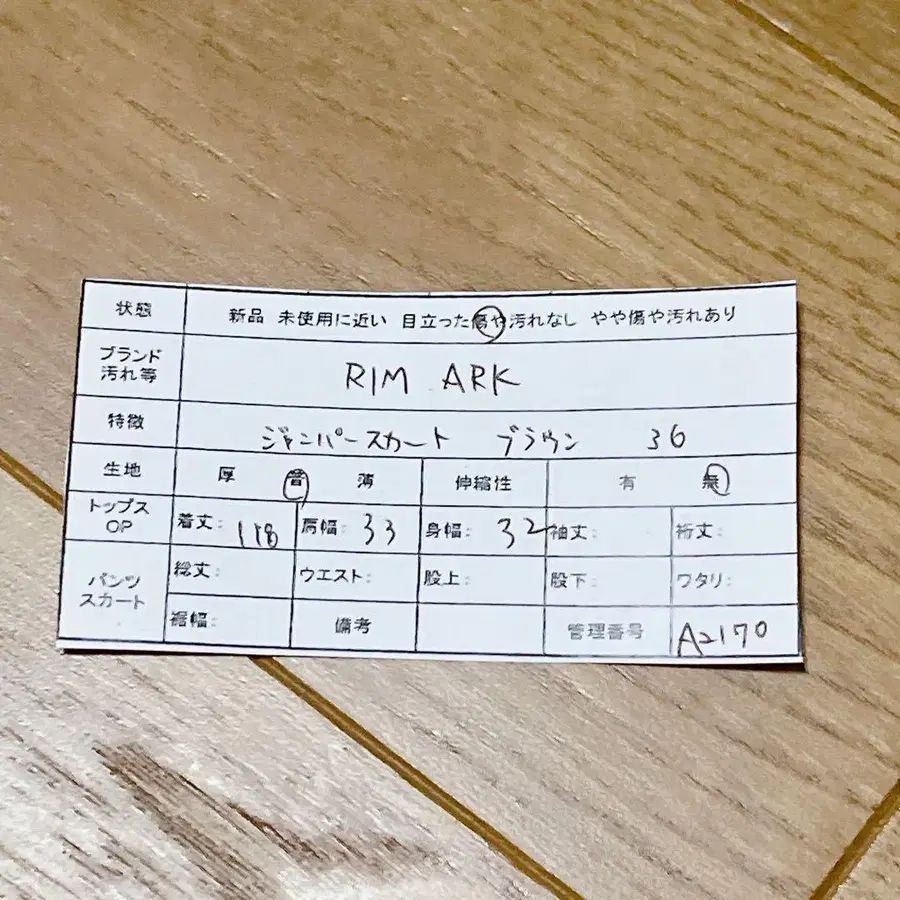 状態 新品 未使用に近い 目立った傷や汚れなし やや傷や汚れあり
ブランド
汚れ等 RIM ARK
特徴 ジャンパースカート ブラウン 36
生地 厚 普 薄 伸縮性 有 無
トップス
OP 着丈: 118 肩幅: 33 身幅: 32 袖丈: 裄丈:
パンツ
スカート 総丈: ウエスト: 股上: 股下: ワタリ:
裾幅: 備考 管理番号 A2170